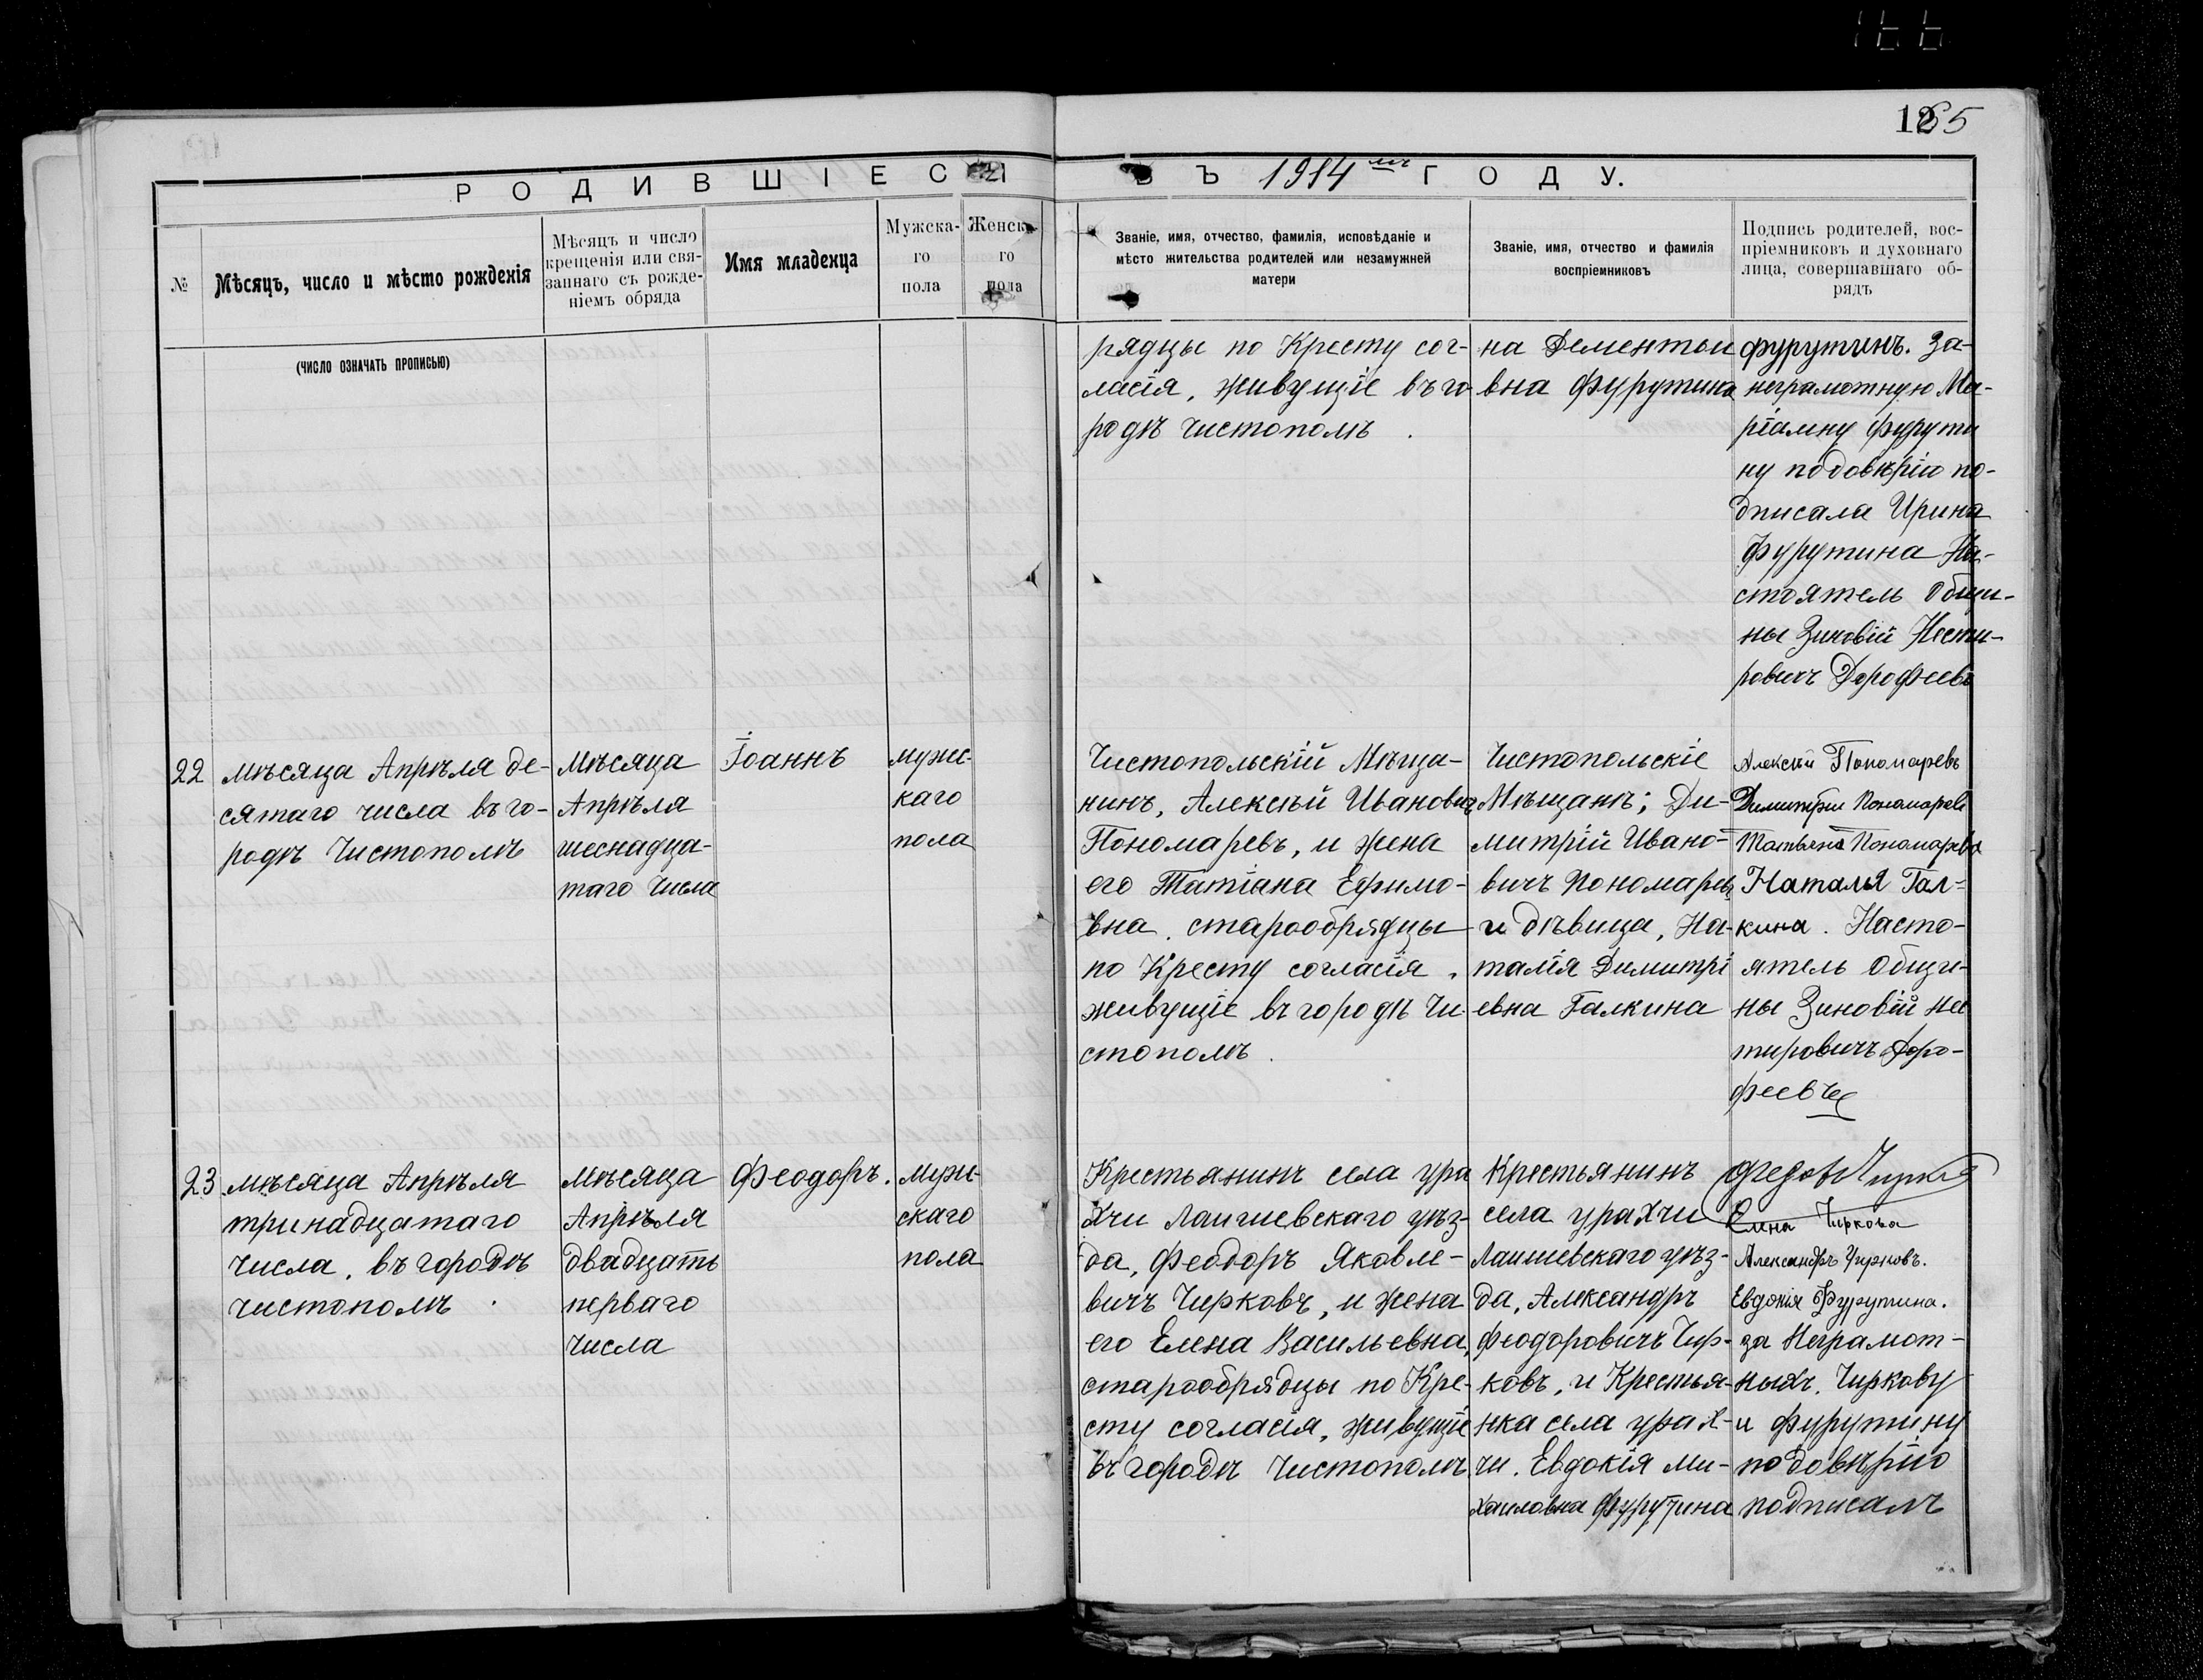 1265
РОДИВШІЕСЯ
ВЪ 1914мъ ГОДУ.
№
Мѣсяцъ, число и мѣсто рожденія
Мѣсяцъ и число
крещенія или свя-
заннаго съ рожде-
ніемъ обряда
Имя младенца
Мужска-
го
пола
Женска-
го
пола
Званіе, имя, отчество, фамилія, исповѣданіе и
мѣсто жительства родителей или незамужней
матери
Званіе, имя, отчество и фамилія
воспріемниковъ
Подпись родителей, вос-
пріемниковъ и духовнаго
лица, совершавшаго об-
рядъ
(ЧИСЛО ОЗНАЧАТЬ ПРОПИСЬЮ)
рядцы по Кресту сог-
ласія, живущіе въ го-
родѣ Чистополѣ.
на Дементьи
вна Фурутина
Фурутинъ. За-
неграмотную Ма-
ріамну Фурути
ну по довѣрію по-
дписала Ирина
Фурутина На-
стоятель Общи-
ны Зиновій Несте-
ровичъ Дорофеевъ
22
мѣсяца Апрѣля де-
сятаго числа въ го-
родѣ Чистополѣ
Мѣсяца
Апрѣля
шеснадца-
таго Числа
Іоаннъ
мужс-
каго
пола
Чистопольскій Мѣща-
нинъ, Алексѣй Ивановичъ
Пономаревъ, и жена
его Татіана Ефимо-
вна. старообрядцы
по Кресту согласія.
живущіе въ городѣ Чи-
стополѣ.
Чистопольскіе
Мѣщанѣ; Ди-
митрій Ивано-
вичъ Пономаревъ
и дѣвица, На-
талія Димитрі
евна Галкина
Алексѣй Пономаревъ
Димитрій Пономаревъ
Татьяна Пономарева
Наталья Гал-
кина. Насто-
ятель Общи-
ны Зиновій Нес
тировичъ Доро-
феевъ
23
мѣсяца Апрѣля
тринадцатаго
числа, въ городѣ
чистополѣ.
Мѣсяца
Апрѣля
двадцать
перваго
числа
Феодоръ.
мужс-
скаго
пола
Крестьянинъ села ура
хчи Лаишевскаго уѣз-
да, Феодоръ Яковле-
вичъ Чирковъ, и жена
его Елена Васильевна,
старообрядцы по Кре-
сту согласія, живущіе
въ городѣ Чистополѣ.
Крестьянинъ
села урахчи
Лаишевскаго уѣз-
да, Александръ
Феодоровичъ Чир-
ковъ, и Крестья-
нка села урах-
чи. Евдокія Ми-
хаиловна Фурутина
Федоръ Чирков
Елена Чиркова
Александръ Чирковъ.
Евдокія Фурутина.
за Неграмот-
ныхъ. Чиркову
и Фурутину
по довѣрію
подписалъ